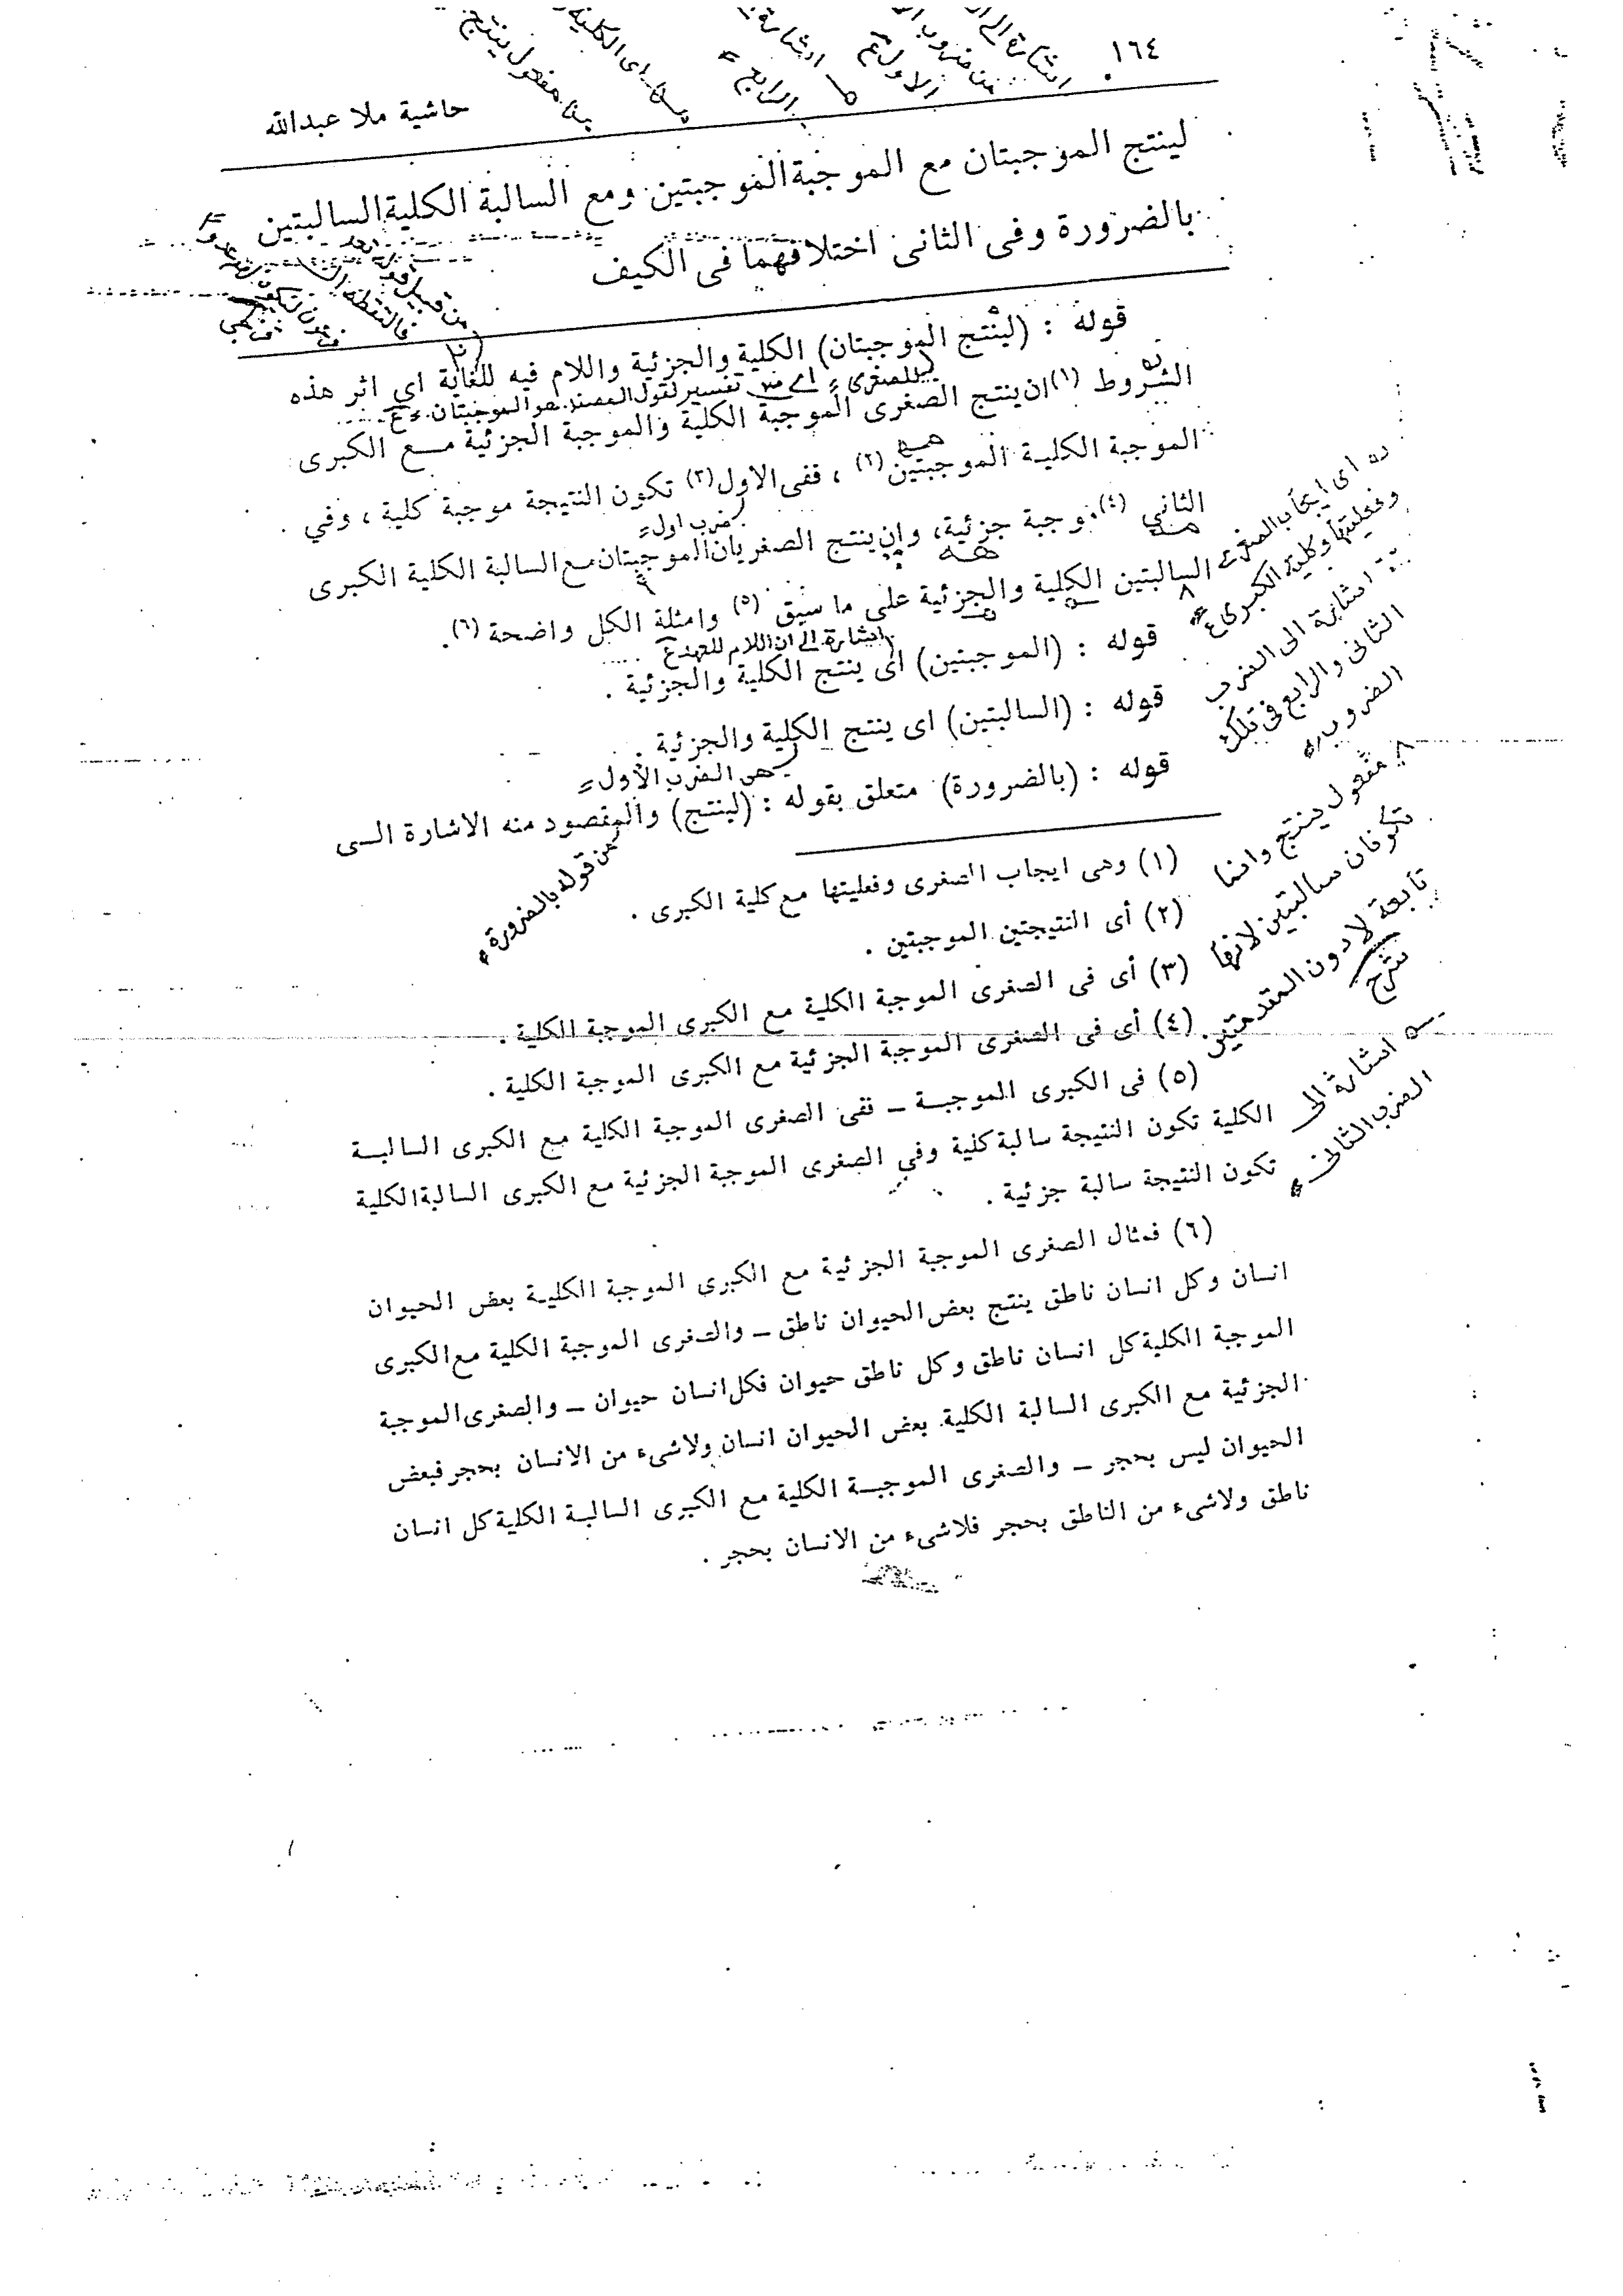 ١٦٤
حاشية ملا عبدالله
لينتج الموجبتان مع الموجبة الموجبتين ومع السالبة الكلية السالبتين
بالضرورة وفى الثانى اختلافهما فى الكيف
قوله : (لينتج الموجبتان) الكلية والجزئية واللام فيه للغاية اي اثر هذه
الشروط (١) ان ينتج الصغرى الموجبة الكلية والموجبة الجزئية مع الكبرى
الموجبة الكلية الموجبتين (٢) ، ففى الاول (٣) تكون النتيجة موجبة كلية ، وفي
الثاني (٤) موجبة جزئية، وان ينتج الصغريان الموجبتان مع السالبة الكلية الكبرى
السالبتين الكلية والجزئية على ما سبق (٥) وامثلة الكل واضحة (٦).
قوله : (الموجبتين) اى ينتج الكلية والجزئية .
قوله : (السالبتين) اى ينتج الكلية والجزئية .
قوله : (بالضرورة) متعلق بقوله : (لينتج) والمقصود منه الاشارة الى
(١) وهى ايجاب الصغرى وفعليتها مع كلية الكبرى .
(٢) أى النتيجتين الموجبتين .
(٣) أى فى الصغرى الموجبة الكلية مع الكبرى الموجبة الكلية .
(٤) أى فى الصغرى الموجبة الجزئية مع الكبرى الموجبة الكلية .
(٥) فى الكبرى الموجبة – ففى الصغرى الموجبة الكلية مع الكبرى السالبة
الكلية تكون النتيجة سالبة كلية وفي الصغرى الموجبة الجزئية مع الكبرى السالبة الكلية
تكون النتيجة سالبة جزئية .
(٦) فمثال الصغرى الموجبة الجزئية مع الكبرى الموجبة الكلية بعض الحيوان
انسان وكل انسان ناطق ينتج بعض الحيوان ناطق – والصغرى الموجبة الكلية مع الكبرى
الموجبة الكلية كل انسان ناطق وكل ناطق حيوان فكل انسان حيوان – والصغرى الموجبة
الجزئية مع الكبرى السالبة الكلية بعض الحيوان انسان ولاشىء من الانسان بحجر فبعض
الحيوان ليس بحجر – والصغرى الموجبة الكلية مع الكبرى السالبة الكلية كل انسان
ناطق ولاشىء من الناطق بحجر فلاشىء من الانسان بحجر .
اى ايجاب الصغرى
وفعليتها وكلية الكبرى
اشارة الى الضرب
الثانى والرابع فى تلك
الضروب
مفعول ينتج وانما
تكونان سالبتين لانها
تابعة لادون المقدمتين
شرح
اشارة الى
الضرب الثانى
ضرب اول
اشارة الى ان اللام للعهد
هى الضرب الاول
من قوله بالضرورة